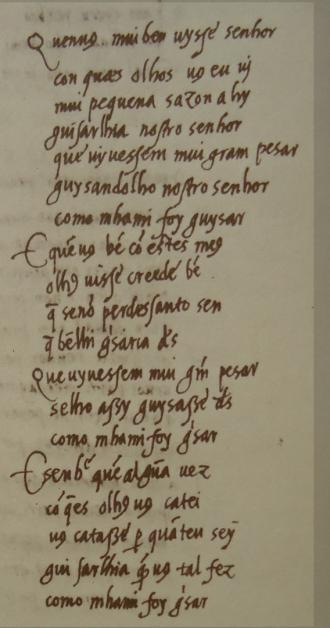 Quenuꝯ mui ben uysse senhor
con quaes olhos uꝯ eu uj
mui pequena sazon a hy
guisarlhia nostro senhor
que uyuessem mui gram pesar
guysandolho nostro senhor
como mhami foy guysar
E quē uꝯ bē cō estes meꝯ
olhꝯ uisse creede bē
q̄ senō perdessanto sen
q̄ bē lhi gʹsaria d̄s
Que uyuessem mui gʹm pesar
selho assy guysasse d̄s
como mhami foy gʹsar
E senbē que algūa uez
cō q̄es olhꝯ uꝯ catei
uꝯ catasse ꝑ quāteu sey
gui sarlhia uꝯ tal fez
como mhami foy gʹsar